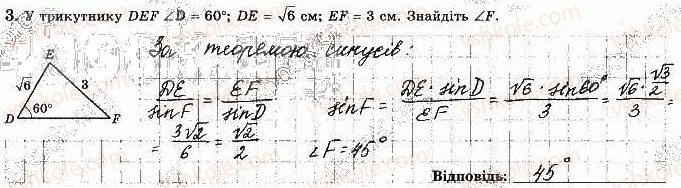 3. У трикутнику DEF ∠D = 60°; DE = √6 см; EF = 3 см. Знайдіть ∠F.
За теоремою синусів:
E
√6 3
60°
D F
DE/sinF = EF/sinD sinF = DE · sinD / EF = √6 · sin60° / 3 = √6 · √3/2 / 3 =
= 3√2/6 = √2/2 ∠F = 45°
Відповідь: 45°